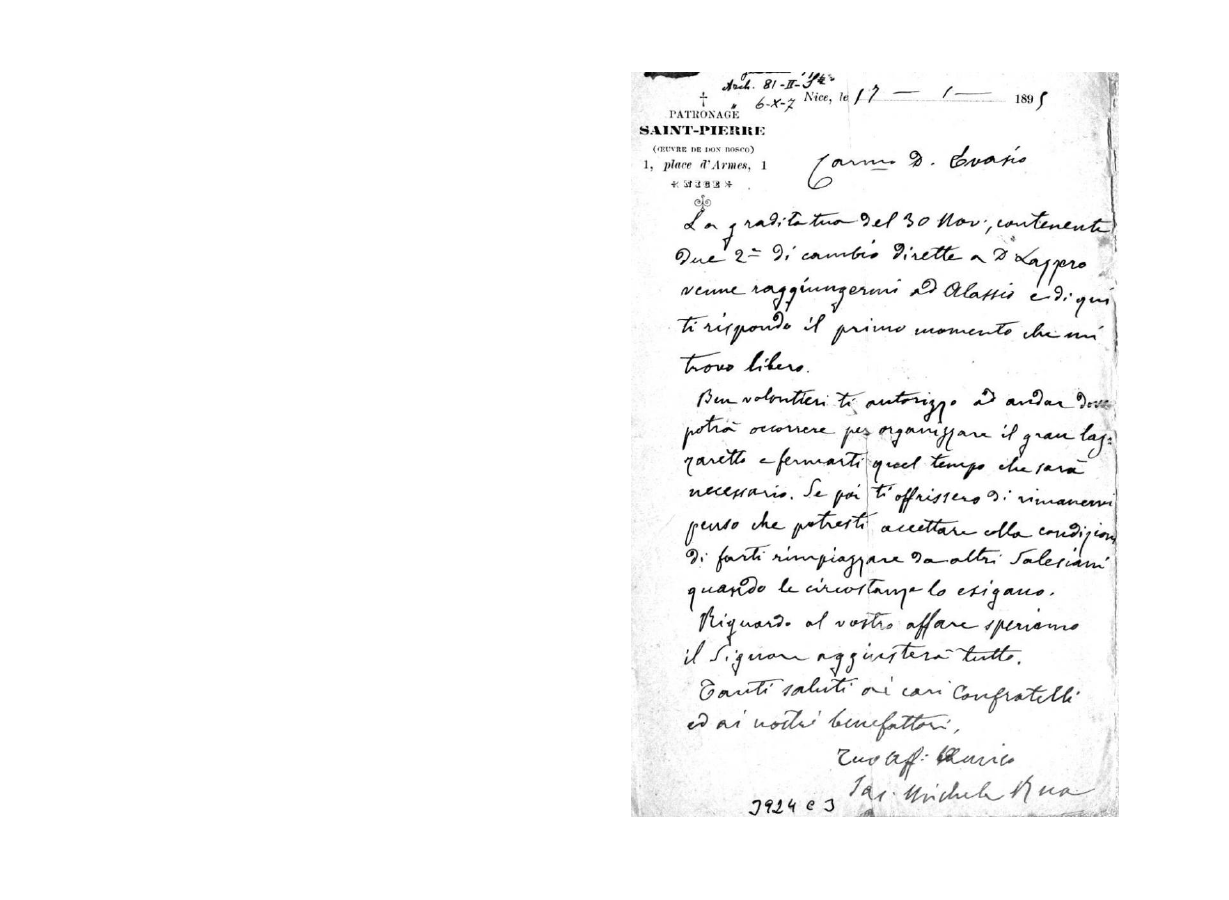 Arch. 81-II-
6-X-7
Nice, le 17 — 1 — 1895
PATRONAGE
SAINT-PIERRE
(ŒUVRE DE DON BOSCO)
1, place d'Armes, 1
NICE
Carmo D. Evasio
La gradita tua del 30 Nov., contenente
due 2e di cambio dirette a D. Lazzero
venne raggiungermi ad Alassio e di qui
ti rispondo il primo momento che mi
trovo libero.
Ben volontieri ti autorizzo ad andar dove
potrà occorrere per organizzare il gran laz-
zaretto e fermarti quel tempo che sarà
necessario. Se poi ti offrissero di rimanervi
penso che potresti accettare colla condizione
di farti rimpiazzare da altri Salesiani
quando le circostanze lo esigano.
Riguardo al vostro affare speriamo
il Signore aggiusterà tutto.
Tanti saluti ai cari Confratelli
ed ai nostri benefattori,
Tuo aff. Amico
Sac. Michele Rua
3924 C 3